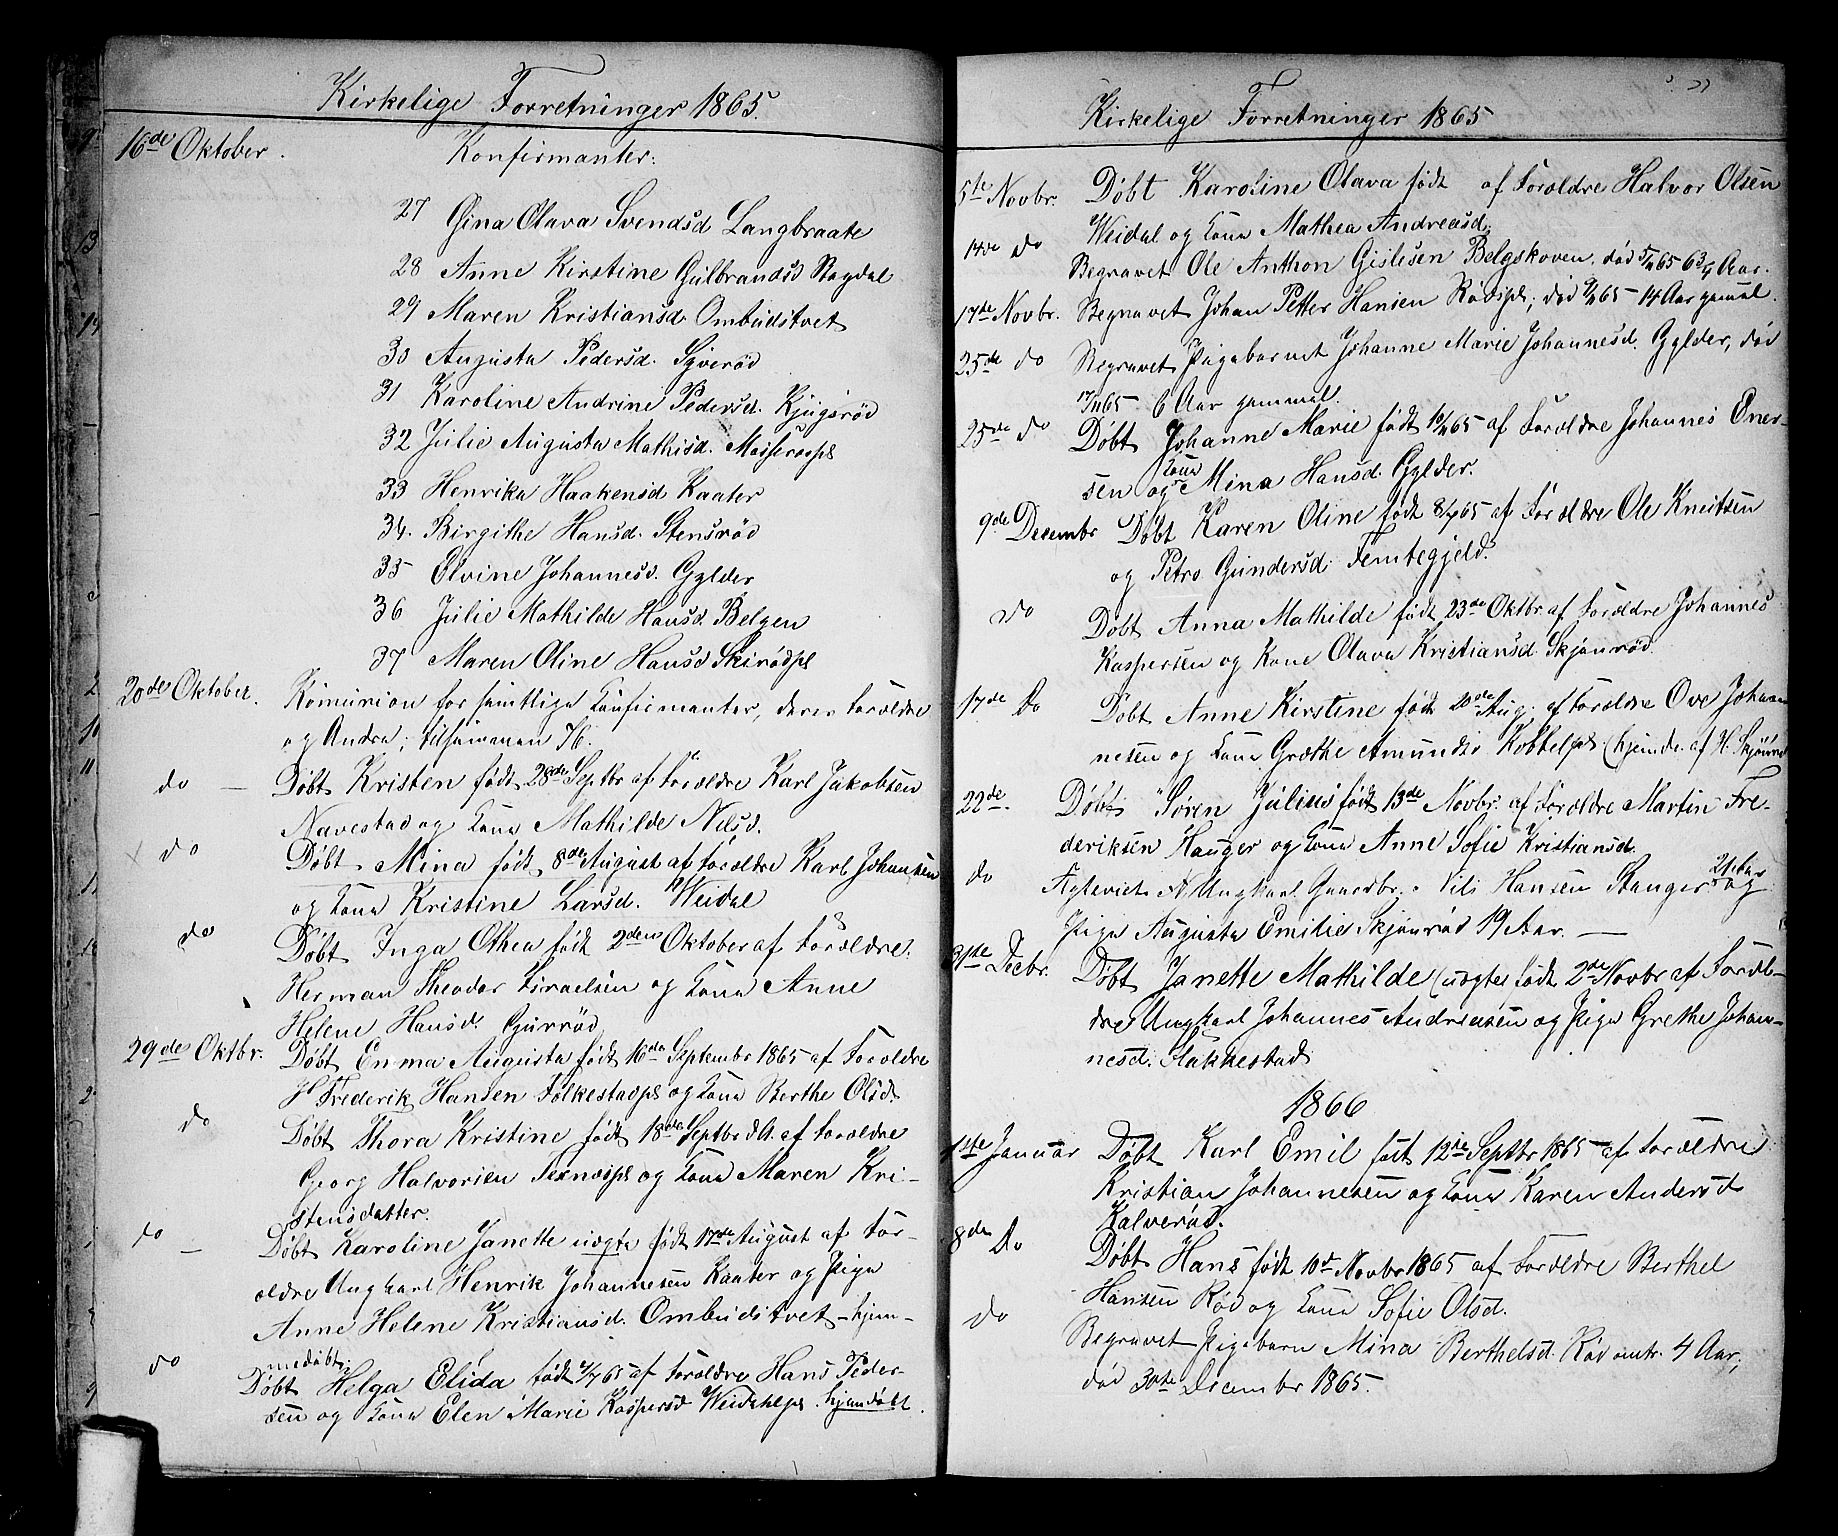 Kirkelige Forretninger 1865.
16de Oktober. Konfirmanter:
27 Gina Olava Svendsd Langbraate
28 Anne Kirstine Gulbrandsd Rogdal
29 Maren Kristiansd. Ombudstvet
30 Augusta Pedersd. Syverød
31 Karoline Andrine Pedersd. Kjugsrød
32 Julie Augusta Mathisd.
33 Henrika Haakensd Kaater
34. Birgithe Hansd. Stensrød
35 Olvine Johannesd. Gylder
36 Julie Mathilde Hansd. Belgen
37 Maren Oline Hansd Skirødpl
20de Oktober. Komunion for samtlige Konfirmanter, deres Foreldre
og Andre; tilsammen 76.
do — Døbt Kristen født 28de Septbr af Foreldre Karl Jakobsen
Navestad og Kone Mathilde Nilsd.
do Døbt Mina født 8de August af Foreldre Karl Johansen
og Kone Kristine Larsd. Weidal
do Døbt Inga Othea født 2den Oktober af Foreldre
Herman Theodor Israelsen og Kone Anne
Helene Hansd. Gurrød
29de Oktbr. Døbt Emma Augusta født 16de September 1865 af Foreldre
H Frederik Hansen Folkestadpl og Kone Berthe Olsd.
do Døbt Thora Kristine født 18de Septbr d.A. af Foreldre
Georg Halvorsen Ternæspl og Kone Maren Kri-
stensdatter.
do — Døbt Karoline Janette uægte født 17de August af For-
ældre Ungkarl Henrik Johannesen Kaater og Pige
Anne Helene Kristiansd. Ombudstvet – hjem-
medøbt.
do Døbt Helga Elida født af Foreldre Hans Peder-
sen og Kone Elen Marie Kaspersd Weidahlpl. hjemdøbt.
Kirkelige Forretninger 1865
5te Novbr. Døbt Karoline Olava født af Foreldre Halvor Olsen
Weidal og Kone Mathea Andreasd.
14de do Begravet Ole Anthon Gislesen Belgskoven, død 5/11 65 63/4 Aar.
17de Novbr. Begravet Johan Petter Hansen Rødspl; død 9/11 65 – 14 Aar gammel.
25de do Begravet Pigebarnet Johanne Marie Johannesd. Gylder, død
17/11 65 6 Aar gammel.
25de do Døbt Johanne Marie født 10/11 65 af Foreldre Johannes Ener-
sen og Kone Mina Hansd. Gylder.
9de Decembr Døbt Karen Oline født 8/9 65 af Foreldre Ole Knutsen
og Petro. Gundersd. Femtegjeld.
do Døbt Anna Mathilde født 23de Oktbr af Foreldre Johannes
Kaspersen og Kone Olava Kristiansd Skjønrød.
17de Do Døbt Anne Kirstine født 20de Aug: af Foreldre Ove Johan
nesen og Kone Grethe Amundsd. Kobbelpl (hjemdø. af H. Skjønrød
22de. Døbt Søren Julius født 13de Novbr. af Foreldre Martin Fre-
deriksen Hauger og Kone Anne Sofie Kristiansd.
do Ægteviet Ungkarl Gaardbr. Nils Hansen Stanger 21 Aar og
Pige Augusta Emilie Skjønrød 19 Aar. —
31te Decbr. Døbt Janette Mathilde (uægte) født 2de Novbr af Foræl-
dre Ungkarl Johannes Andreasen og Pige Grethe Johan-
nesd. Hakkestad
1866
1ste Januar Døbt Karl Emil født 12te Septbr 1865 – af Foreldre
Kristian Johannesen og Kone Karen Andersd
Kalverød.
8de Do Døbt Hans født 10de Novbr 1865 af Foreldre Berthel
Hansen Rød og Kone Sofie Olsd.
do Begravet Pigebarn Mina Berthelsd. Rød omtr. 4 Aar,
død 30te December 1865.